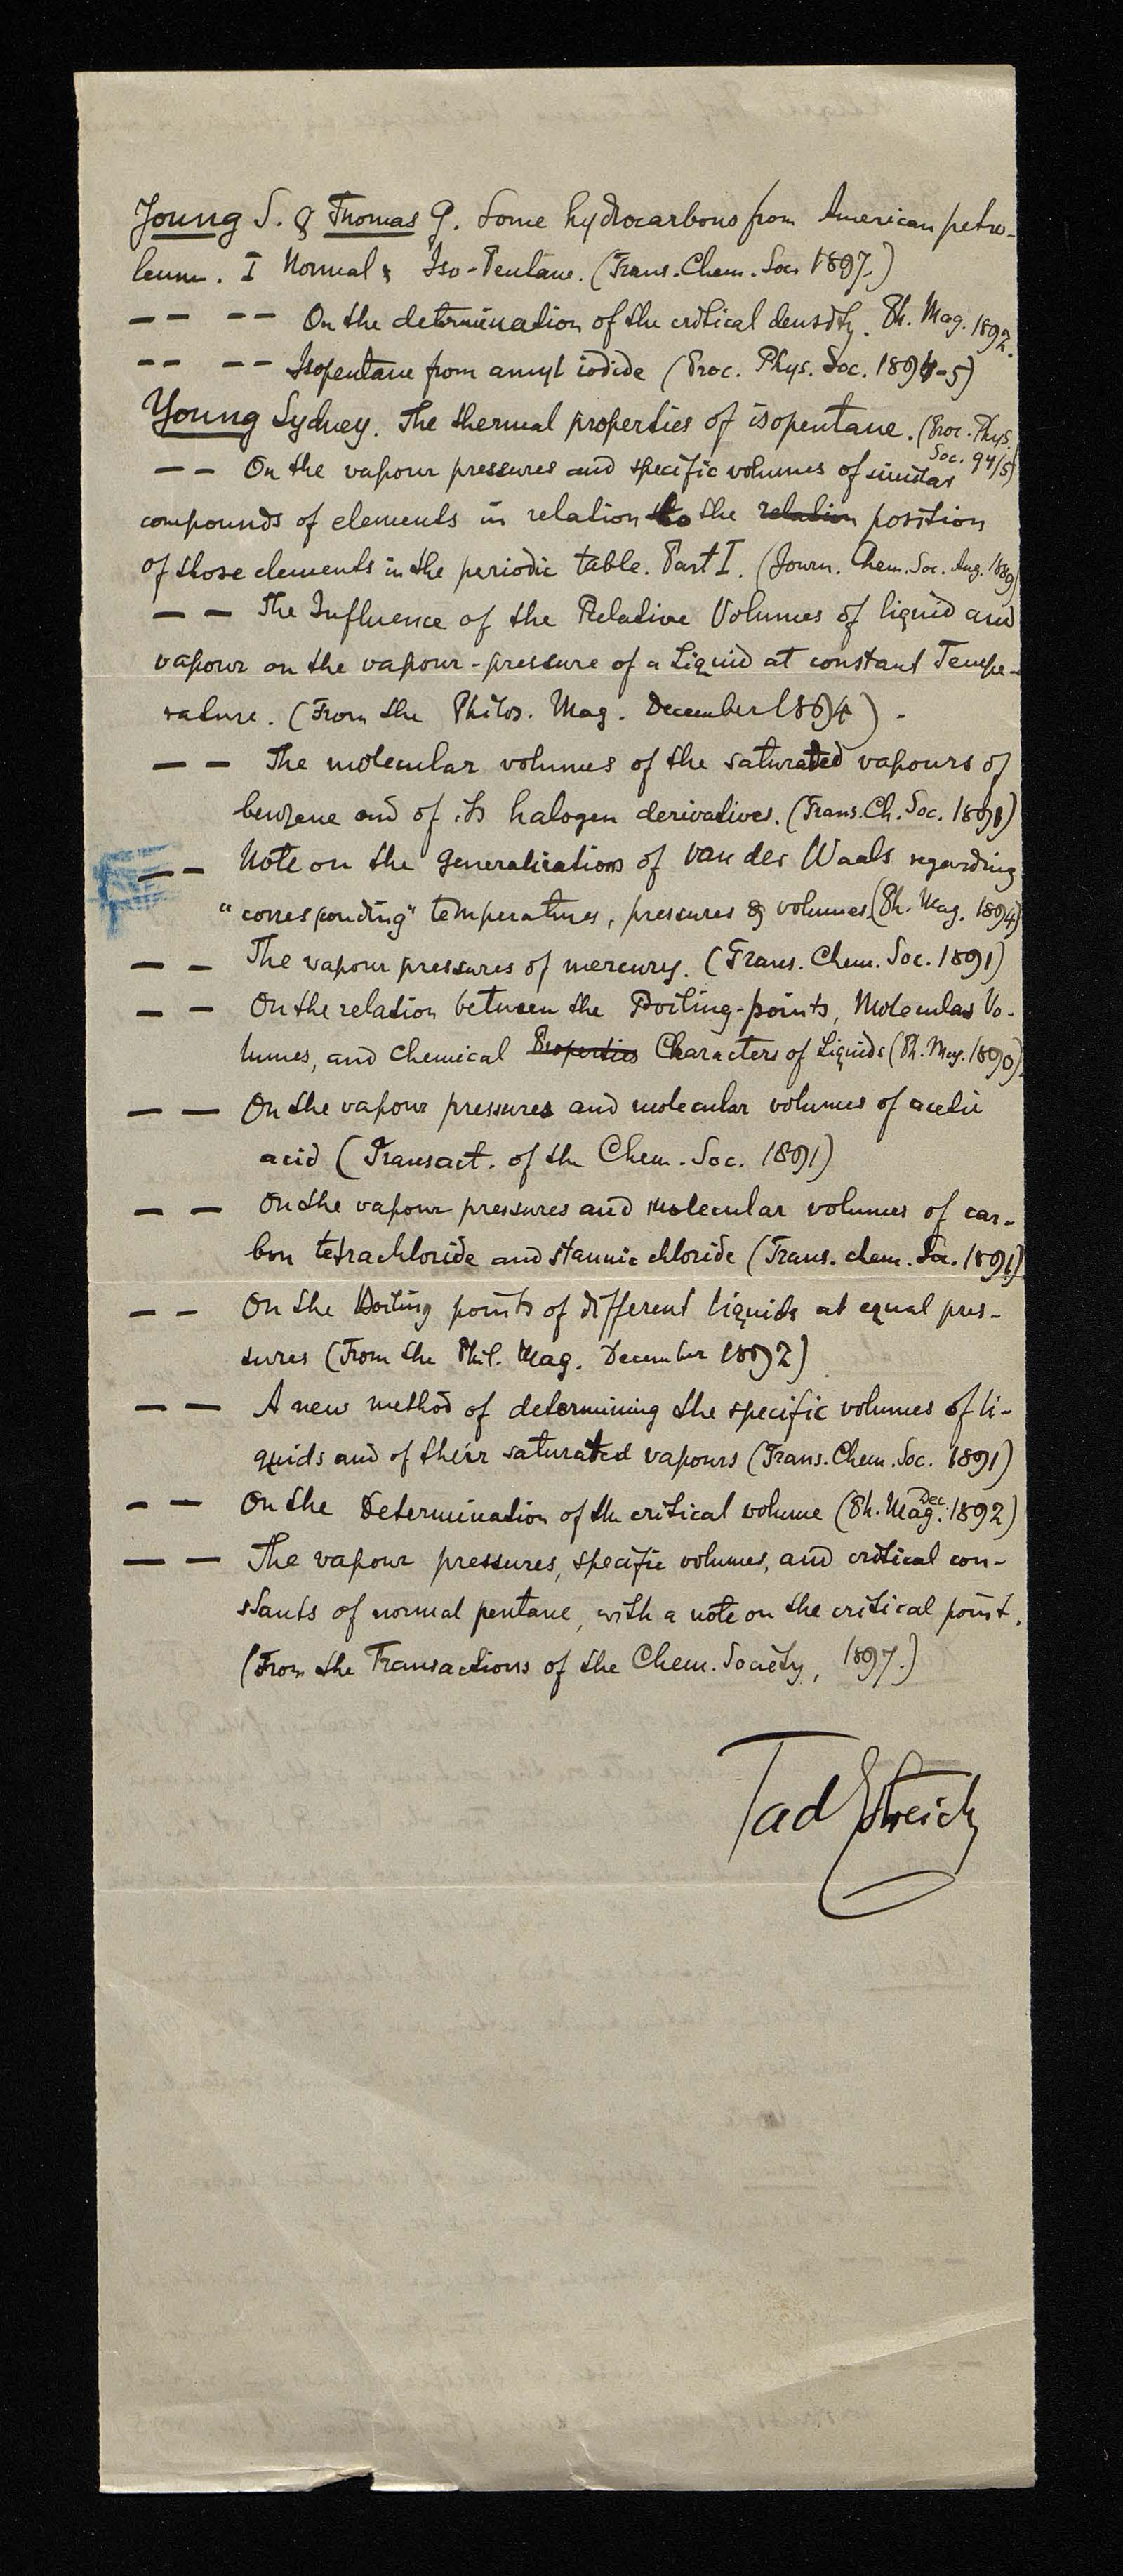 Young S. & Thomas G. Some hydrocarbons from American petro-
leum. I Normal & Iso-Pentane. (Trans. Chem. Soc. 1897.)
— — — — On the determination of the critical density. Ph. Mag. 1892.
— — — — Isopentane from amyl iodide (Proc. Phys. Soc. 1894-5)
Young Sydney. The thermal properties of isopentane. (Proc. Phys. Soc. 94/5)
— — On the vapour pressures and specific volumes of similar
compounds of elements in relation to the relation position
of those elements in the periodic table. Part I. (Journ. Chem. Soc. Aug. 1889)
— — The Influence of the Relative Volumes of liquid and
vapour on the vapour-pressure of a Liquid at constant Tempe-
rature. (From the Philos. Mag. December 1894).
— — The molecular volumes of the saturated vapours of
benzene and of its halogen derivatives. (Trans. Ch. Soc. 1891)
— — Note on the generalizations of van der Waals regarding
"corresponding" temperatures, pressures & volumes (Ph. Mag. 1894)
— — The vapour pressures of mercury. (Trans. Chem. Soc. 1891)
— — On the relation between the Boiling-points, Molecular Vo-
lumes, and chemical Properties Characters of Liquids (Ph. Mag. 1890).
— — On the vapour pressures and molecular volumes of acetic
acid (Transact. of the Chem. Soc. 1891)
— — On the vapour pressures and molecular volumes of car-
bon tetrachloride and stannic chloride (Trans. chem. Soc. 1891)
— — On the Boiling points of different liquids at equal pres-
sures (From the Phil. Mag. December 1892)
— — A new method of determining the specific volumes of li-
quids and of their saturated vapours (Trans. Chem. Soc. 1891)
— — On the Determination of the critical volume (Ph. Mag. Dec. 1892)
— — The vapour pressures, specific volumes, and critical con-
stants of normal pentane, with a note on the critical point.
(From the Transactions of the Chem. Society, 1897.)
Tad Estreich